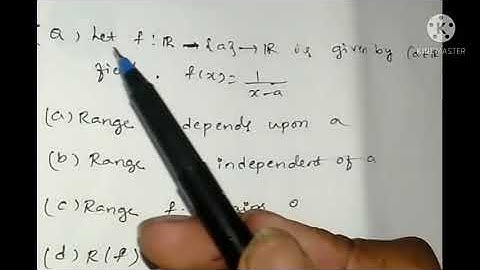 Q) Let f : ℝ - {a} → ℝ is given by (a∈ℝ
fi
f(x) = 1/(x-a)
(a) Range depends upon a
(b) Range independent of a
(c) Range f 0
(d) R(f)
KINEMASTER